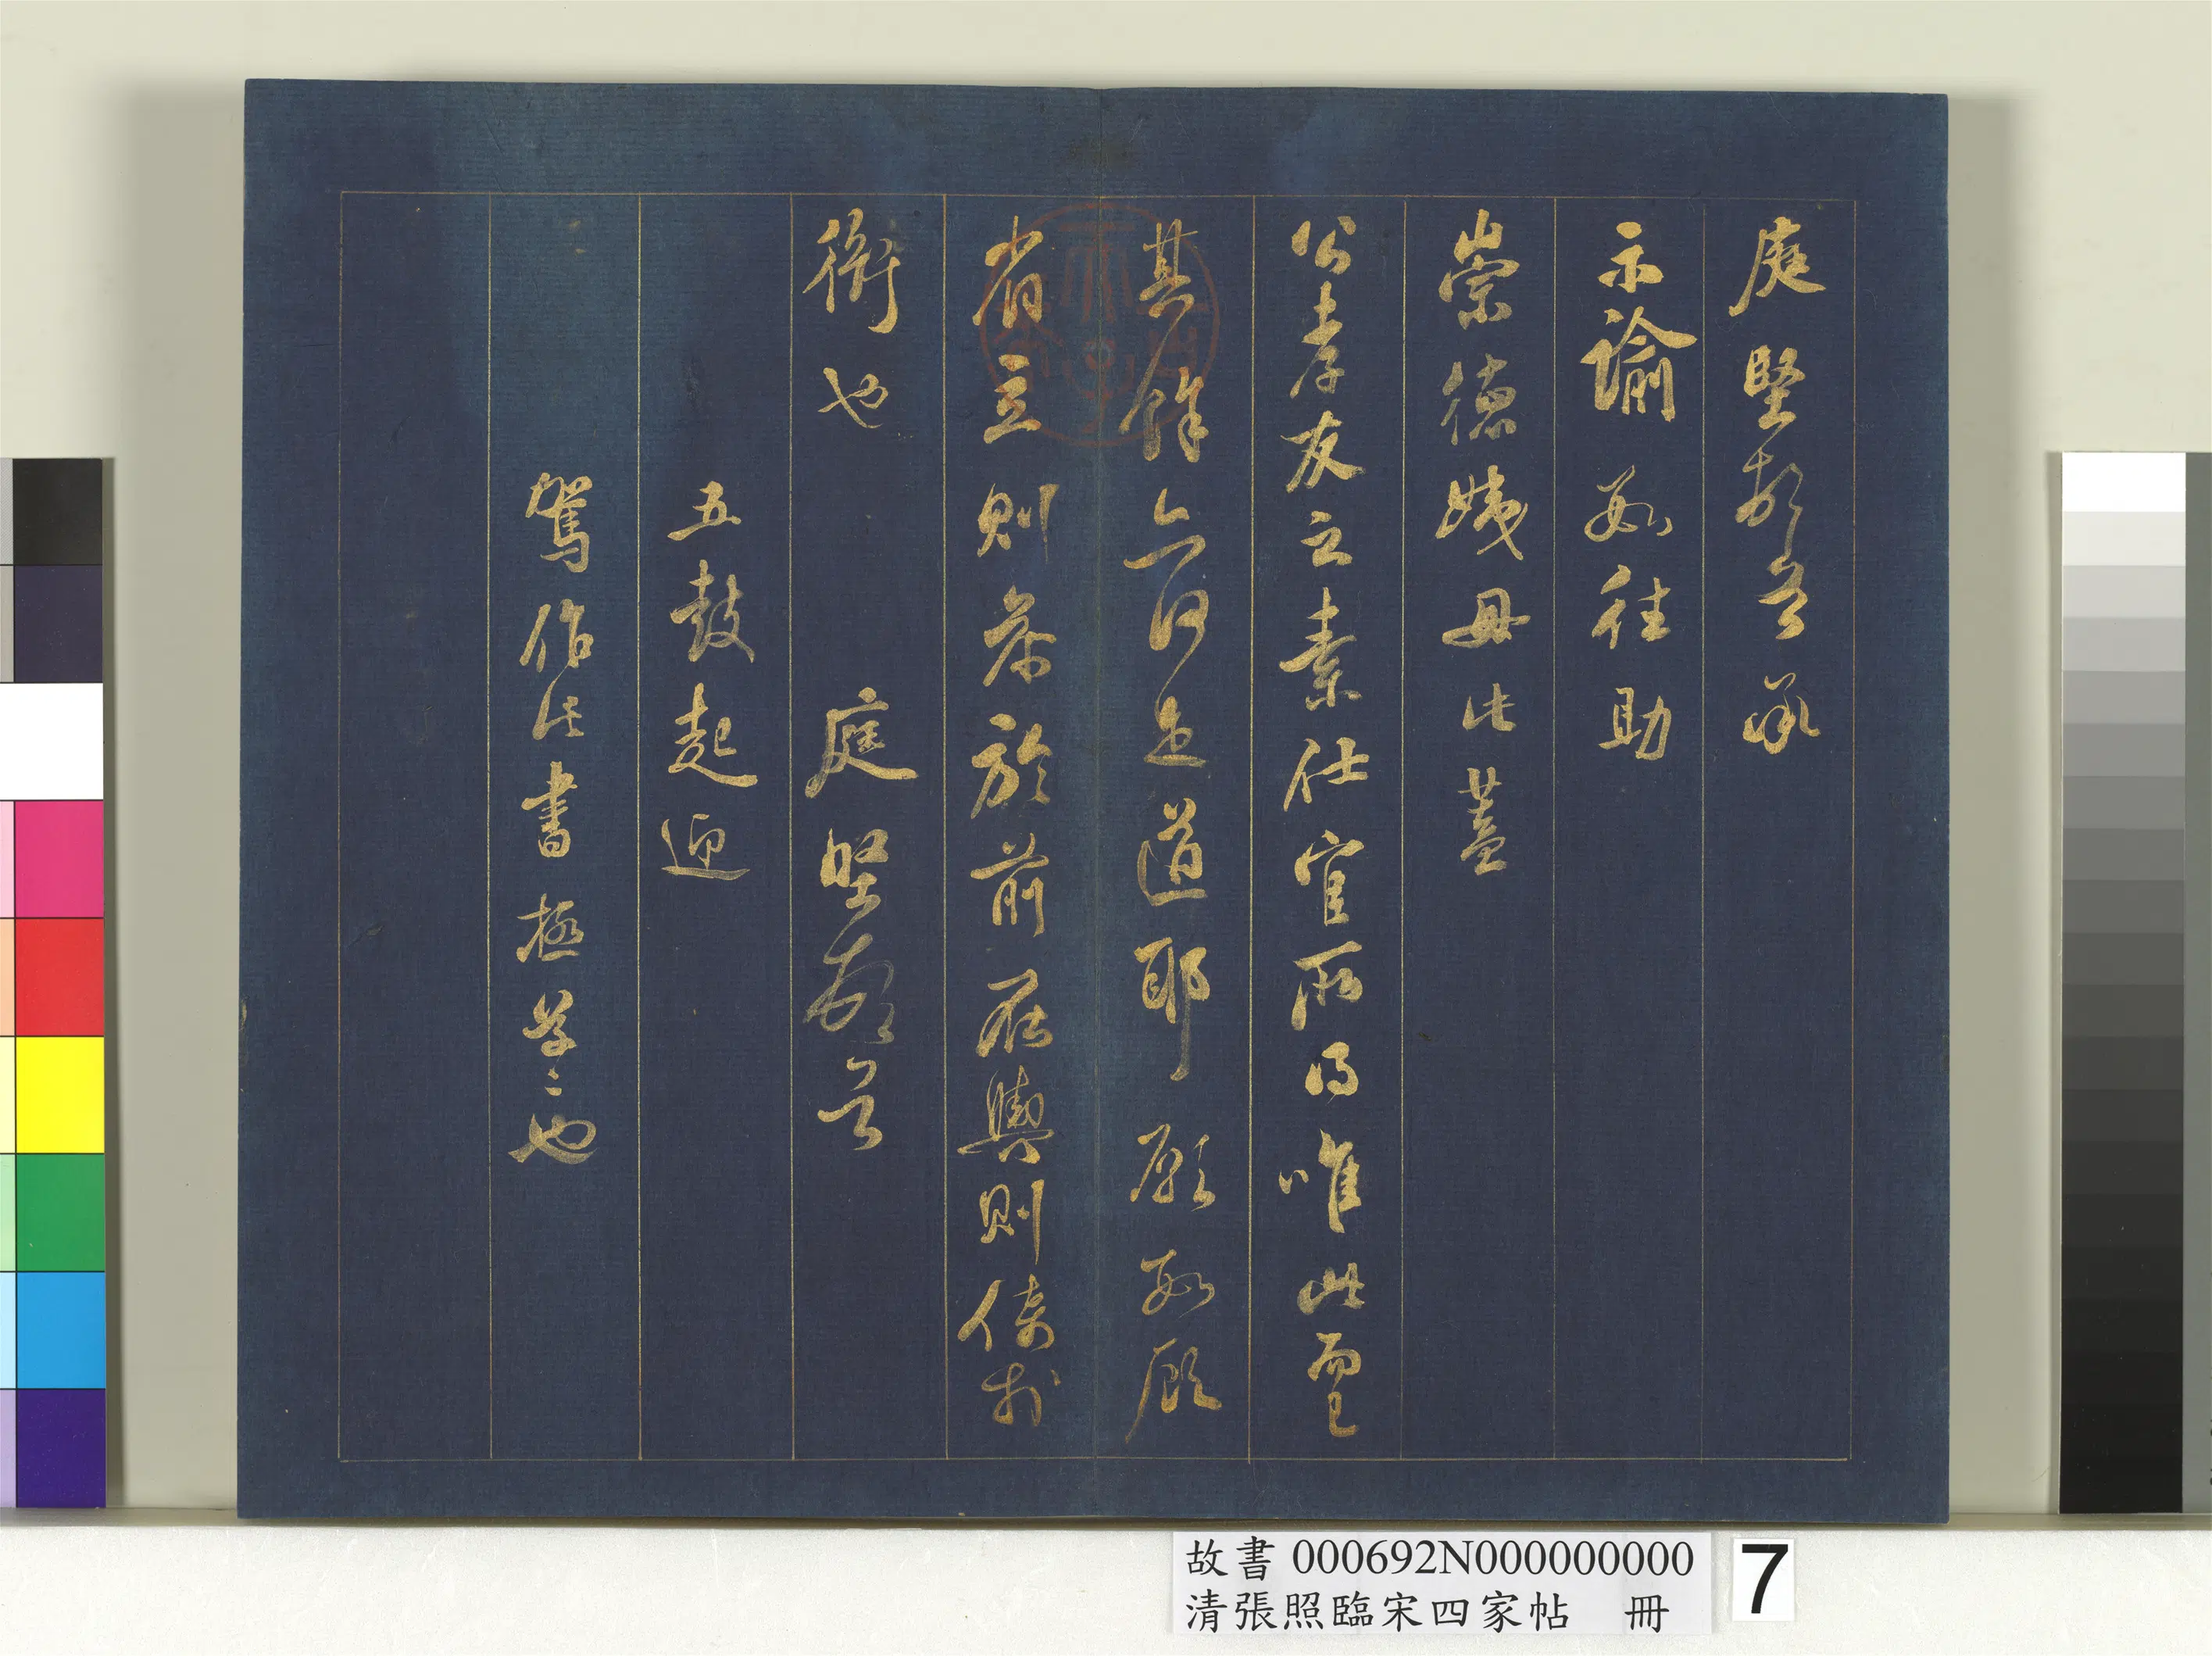 庭堅頓首承
示諭數往助
崇德姨母此蓋
公孝友之素仕宦所得唯此而已
其餘亦何足道耶願數顧
省立則參於前在輿則倚於
衡也　庭堅頓首
五鼓起迎
駕作此書極草〻也
故書 000692N000000000
清張照臨宋四家帖　冊
7